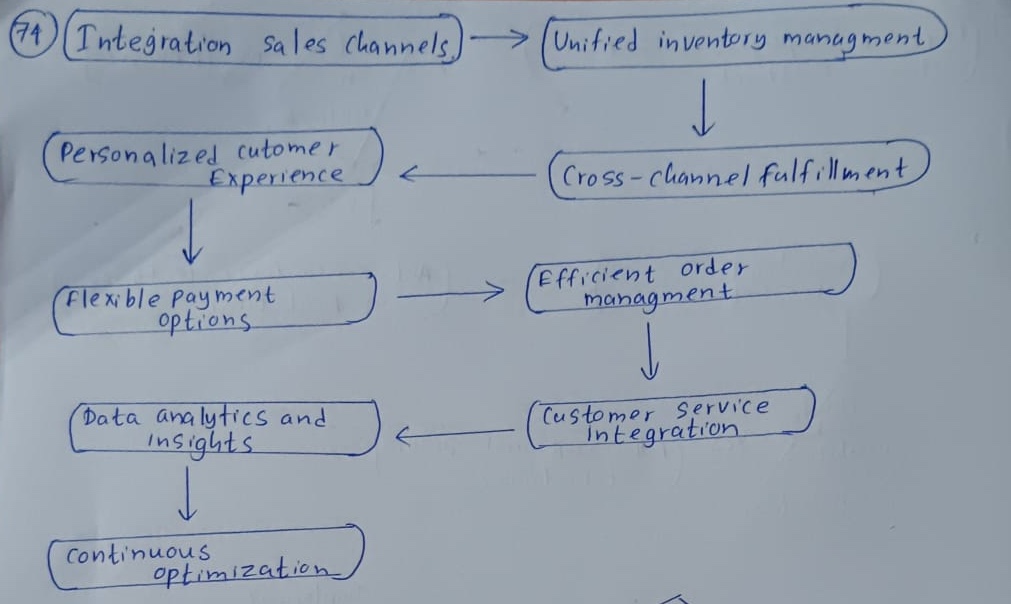 74 Integration sales channels
Unified inventory managment
Cross-channel fulfillment
Personalized cutomer
Experience
Flexible payment
options
Efficient order
managment
Customer service
integration
Data analytics and
insights
continuous
optimization